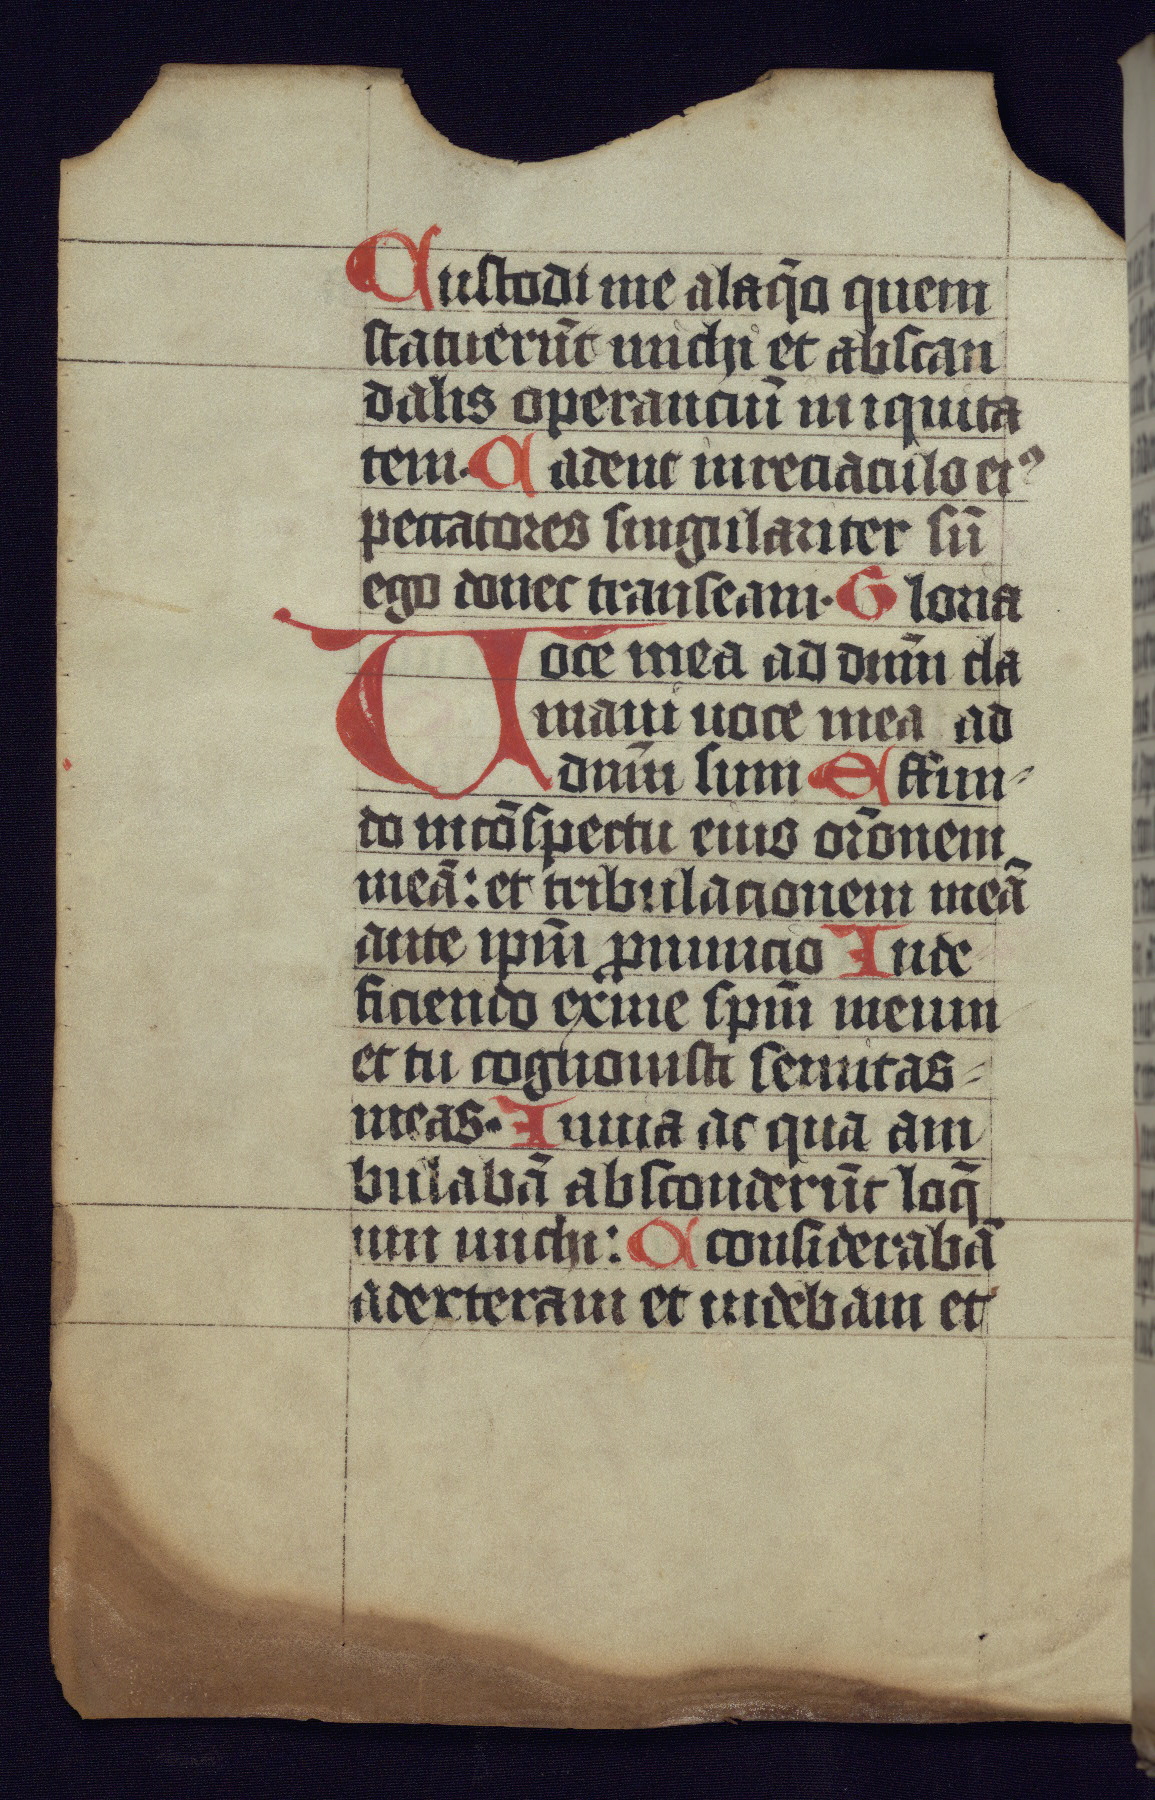 Custodi me alaq̄o quem
statuerūt michi et abscan
dalis operanciū iniquita
tem. Cadent inreciaculo ei⁹
peccatores singulariter sū
ego donec transeam. Gloria
Voce mea ad dnm̄ cla
maui uoce mea ad
dnm̄ sum Effun-
do incōspectu eius or̄onem
meā: et tribulacionem meā
ante ipm̄ ꝓnuncio Inde
ficiendo exme spm̄ meum
et tu cognouisti semitas-
meas. Inuia ac qua am
bulabā absconderūt loq̄
um michi: Considerabā
adexteram et uidebam et